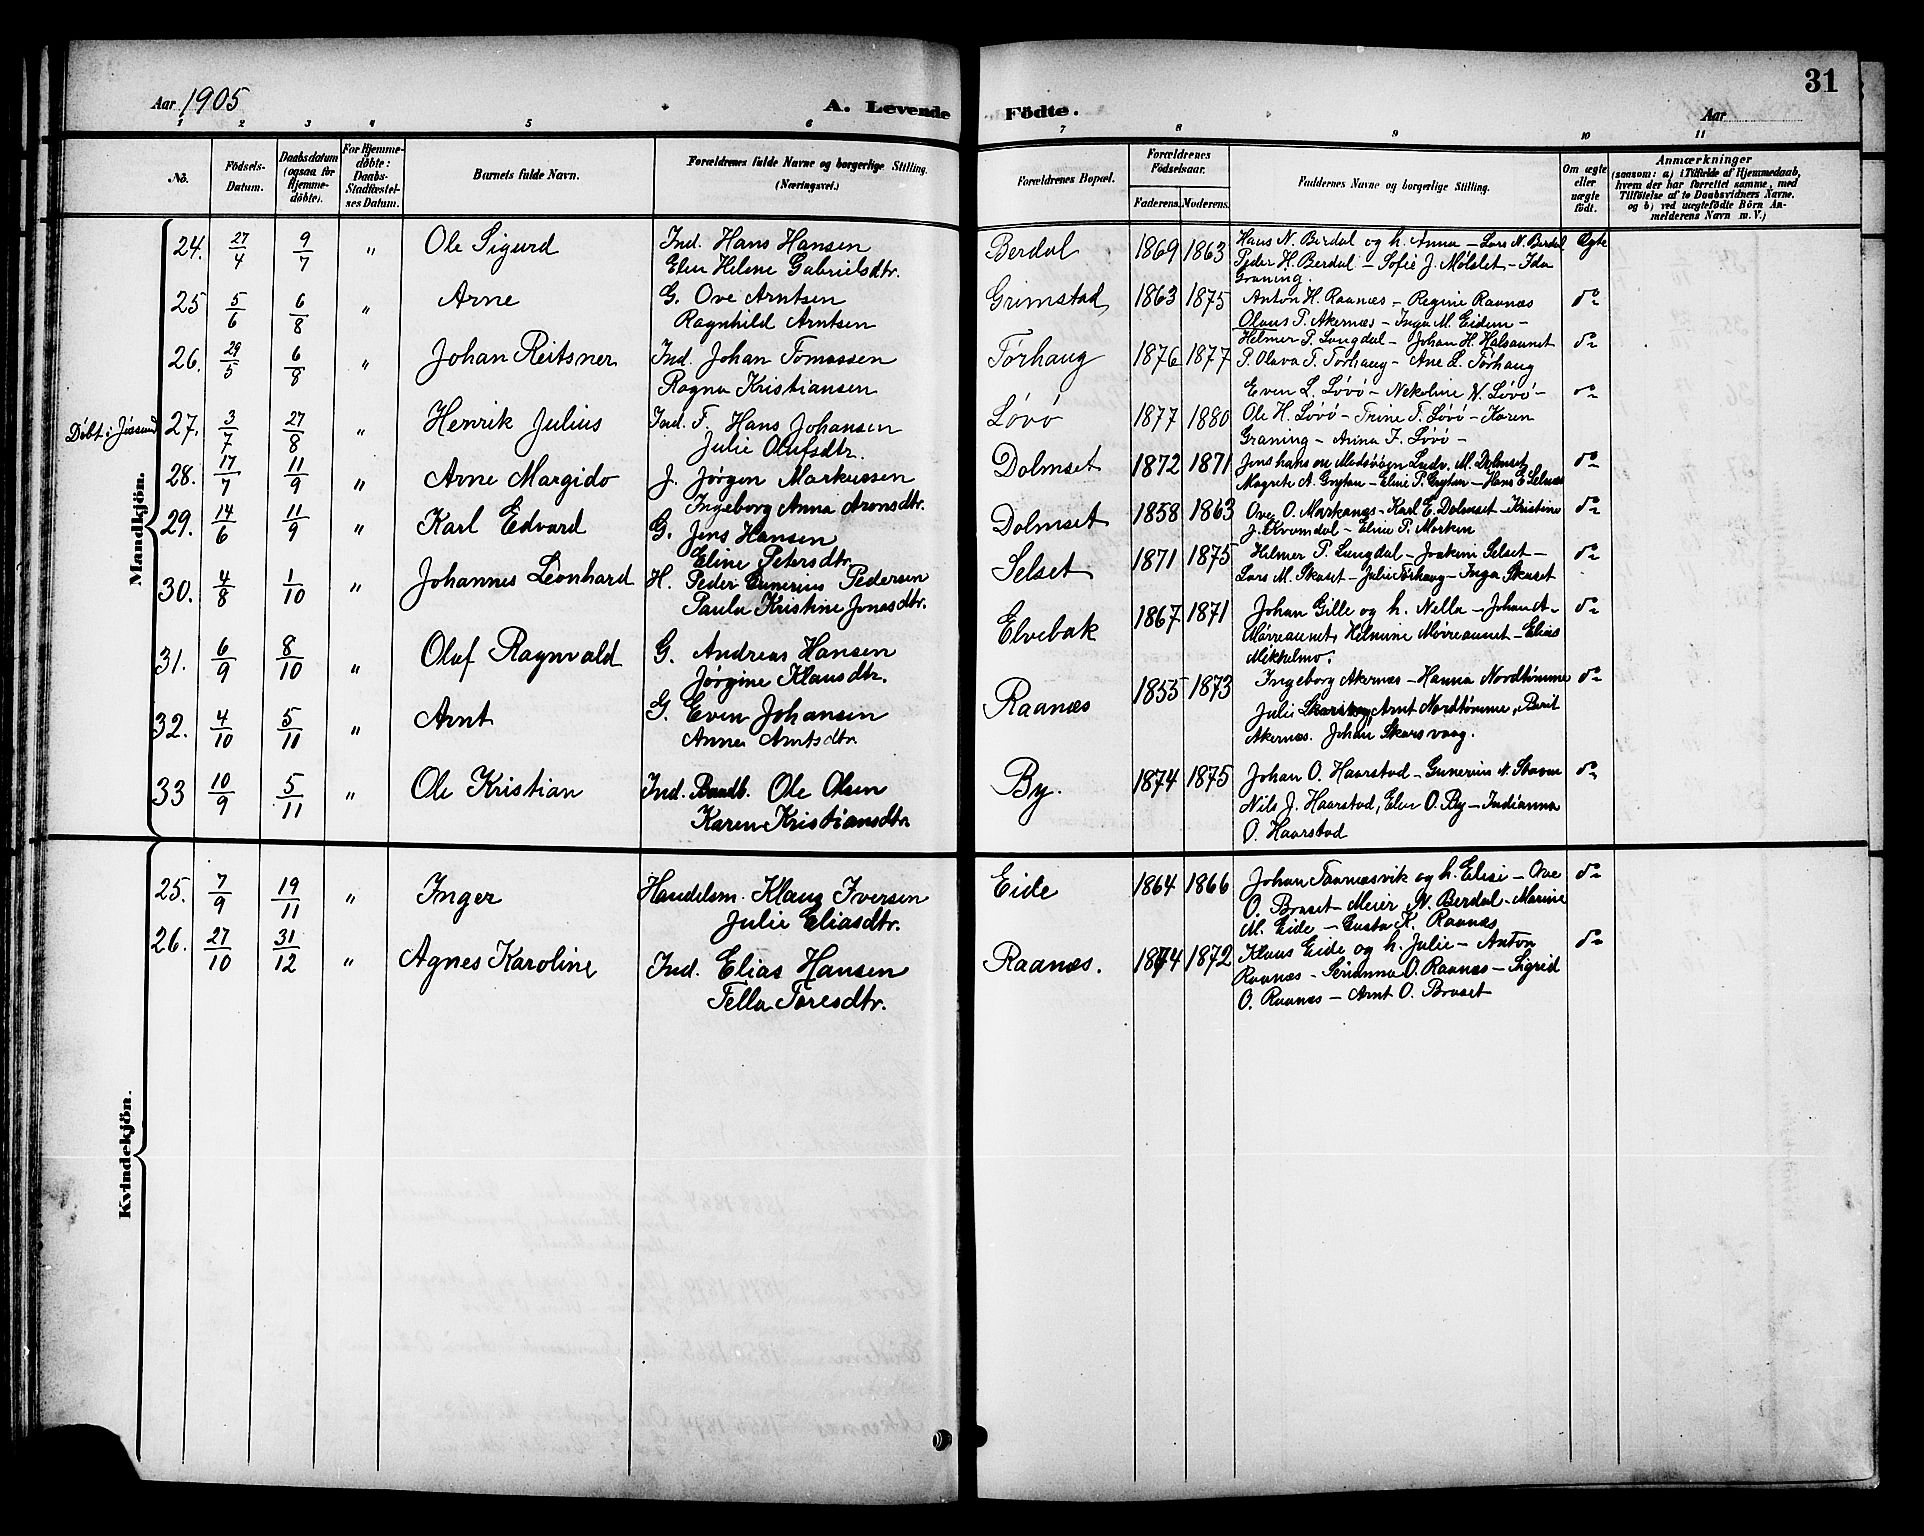 Aar 1905
A. Levende
Födte.
Aar
31
1 2 3 4 5 6 7 8 9 10 11
No.
Födsels-Datum.
Daabsdatum (ogsaa for Hjemmedöbte).
For Hjemmedöbte: Daabs-Stadfæstelses Datum.
Barnets fulde Navn.
Forældrenes fulde Navne og borgerlige Stilling. (Næringsvei.)
Forældrenes Bopæl.
Forældrenes Fødselsaar.
Faderens. Moderens.
Faddernes Navne og borgerlige Stilling.
Om ægte eller uægte født.
Anmærkninger
(saasom: a) i Tilfælde af Hjemmedaab, hvem der har forrettet samme, med Tilföielse af to Daabsvidners Navne. og b) ved uægtefödte Börn Anmelderens Navn m. V.)
Mandkjön.
24. 27/4 9/7 " Ole Sigurd Ind. Hans Hansen Berdal 1869 1863 Hans N. Berdal og h. Anna - Lars N. Berdal Ægte
Elen Helene Gabrielsdtr. Peder H. Berdal - Sofie J. Molslet - Ida
Graning
25 5/6 6/8 " Arne G. Ove Arntsen Grimstad 1863 1875 Anton H. Raanæs - Regine Raanæs do
Ragnhild Arntsen Olaus P. Akernæs - Inga M. Eidem -
26. 29/5 6/8 " Johan Reitsner Ind. Johan Tomassen Tørhaug 1876 1877 Helmer P. Langdal - Johan H. Halsaunet do
Ragna Kristiansen P. Olava T. Tørhaug - Ane L. Tørhaug
Døbt i Jøssund 27. 3/7 27/8 " Henrik Julius Ind. F. Hans Johansen Løvø 1877 1880 Even L. Løvø - Nekoline W. Løvø - do
Julie Olufsdtr. Ole H. Løvø - Trine T. Løvø - Karen
Graning - Anna F. Løvø -
28. 17/7 11/9 " Arne Margido J. Jørgen Markussen Dolmset 1872 1871 Ludv. M. Dolmset do
Ingeborg Anna Aronsdtr. Magrete A. Grytan - Eline P. Grytan - Hans E Selnæs
29. 14/6 11/9 " Karl Edvard G. Jens Hansen Dolmset 1858 1863 Ove O. Markanæs - Karl E. Dolmset - Kristine do
Eline Petersdtr. J. Kvamdal - Eline P. Morken
30. 4/8 1/10 " Johannes Leonhard H. Peder Gunerius Pedersen Selset 1871 1875 Helmer P. Langdal - Joakim Selset - do
Paula Kristine Jonasdtr. Lars M. Skaset - Julie Tørhaug - Inga Skaset
31. 6/9 8/10 " Olaf Ragnvald G. Andreas Hansen Elvebak 1867 1871 Johan Gille og h. Nella - Johan A- do
Jørgine Klausdtr. Mørreaunet, Helmine Mørreaunet - Elias
Mikkelmo.
32. 4/10 5/11 " Arnt G. Even Johansen Raanæs 1855 1873 Ingeborg Akernæs - Hanna Nordtømme do
Anne Arntsdtr. Julie Arnt Nordtømme, Berit
Akernæs. Johan Skarsvaag.
33 10/9 5/11 " Ole Kristian Ind. Baadb. Ole Olsen By. 1874 1875 Johan O. Haarstad - Gunerius N. Stavn do
Karen Kristiansdtr. Nils J. Haarstad, Elen O. By - Indianna
O. Haarstad
Kvindekjön.
25. 7/9 19/11 " Inger Handelsm. Klaus Iversen Eide 1864 1866 Johan Taanæsvik og h. Elisi - Ove do
Julie Eliasdtr. O. Braset - Meier N. Berdal - Marine
M. Eide - Gusta K. Raanæs
26. 27/10 31/12 " Agnes Karoline Ind. Elias Hansen Raanæs. 1874 1872 Klaus Eide og h. Julie - Anton do
Tella Toresdtr. Raanæs - Serianna O. Raanæs - Sigrid
O. Raanæs - Arnt O. Braset